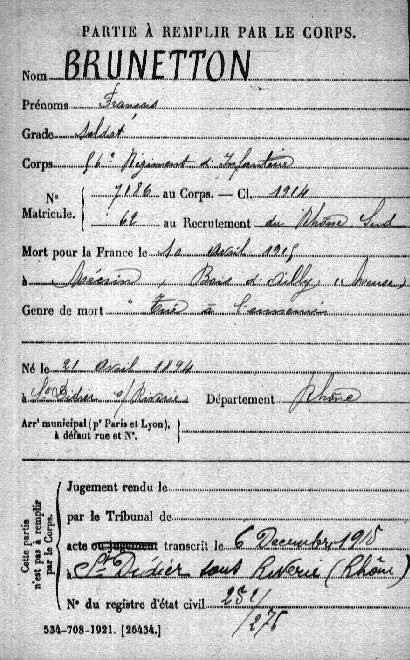 PARTIE À REMPLIR PAR LE CORPS.
Nom BRUNETTON
Prénoms Francois
Grade Soldat
Corps 86e Régiment d'Infanterie
N° Matricule. 7186 au Corps. — Cl. 1914
62 au Recrutement du Rhône Sud
Mort pour la France le 10 avril 1915
à Bois d'Ailly, (Meuse)
Genre de mort " Tué à l'ennemi
Né le 21 avril 1894
à St Didier s/Riverie Département Rhône
Arrt municipal (pr Paris et Lyon), à défaut rue et N°.
Cette partie n'est pas à remplir par le Corps.
Jugement rendu le
par le Tribunal de
acte ou jugement transcrit le 6 Decembre 1915
à St Didier sous Riverie (Rhône)
N° du registre d'état civil 252/
/276
534-708-1921. [26434.]